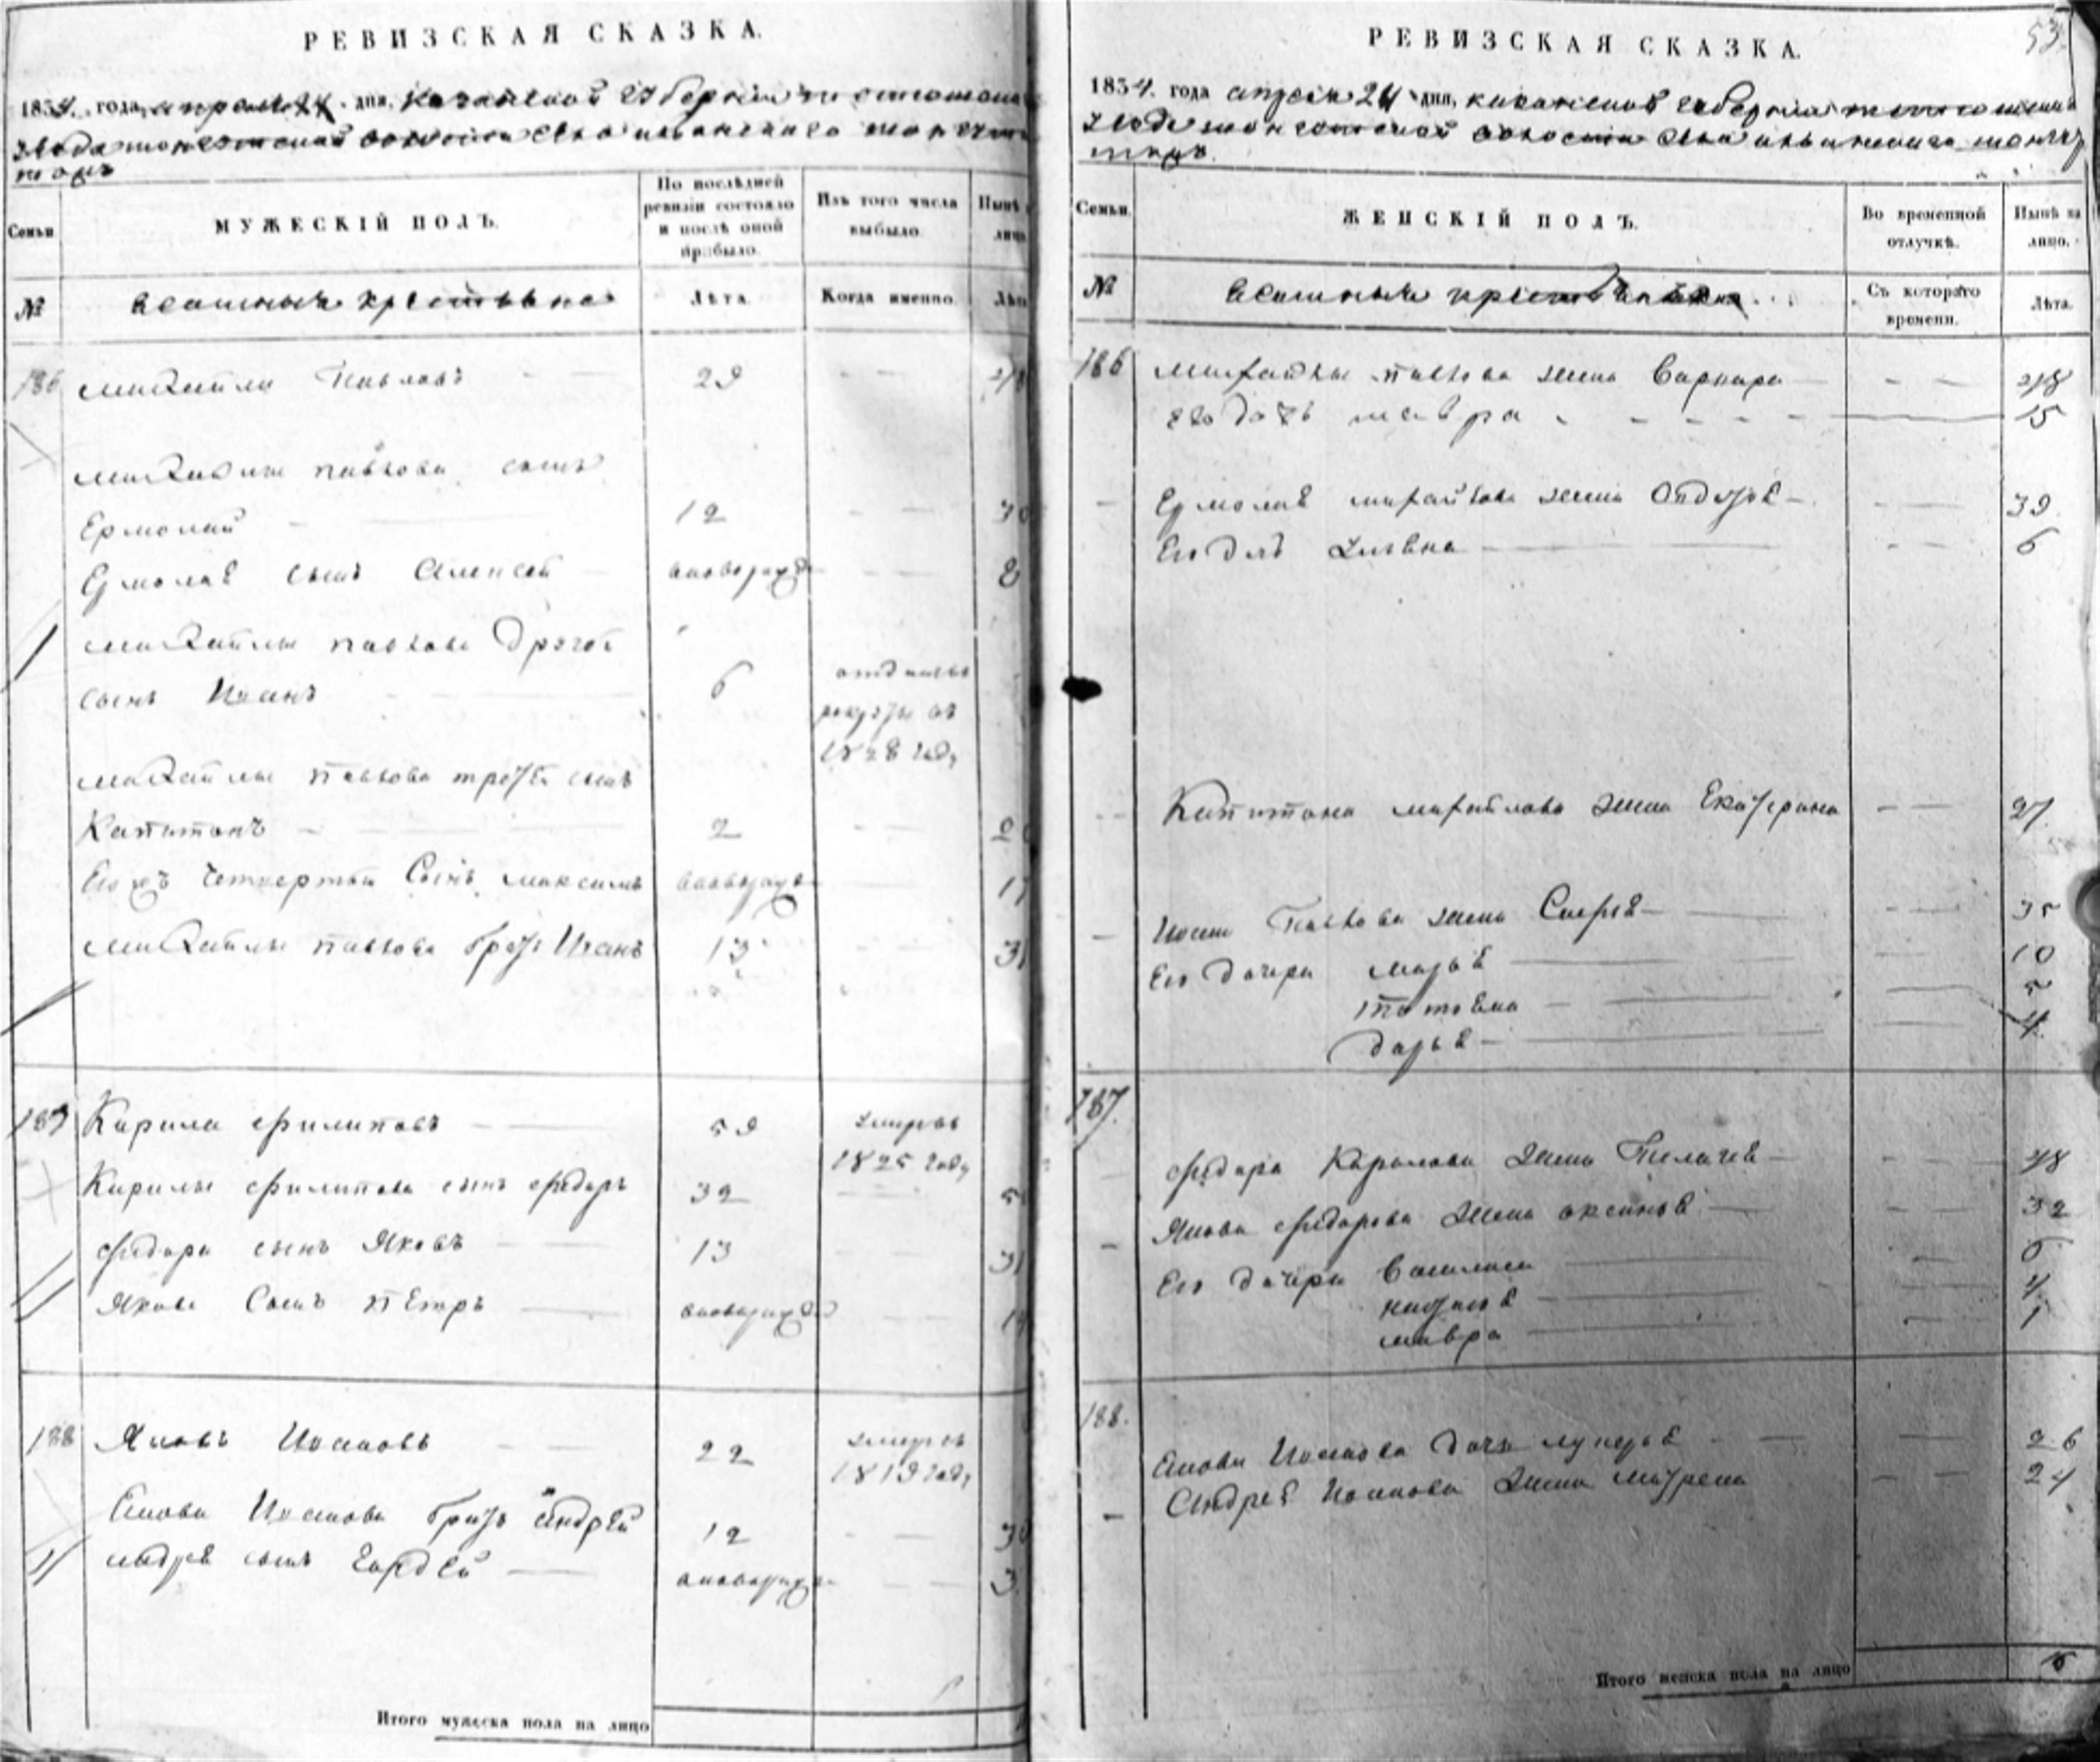 РЕВИЗСКАЯ СКАЗКА.
1834. года, апреля 24 дня, Казанской губернiи
уезда волости села ивановского
МУЖЕСКIЙ ПОЛЪ.
Семьи
По послѣдней ревизiи состояло и послѣ оной прибыло.
Изъ того числа выбыло.
Нынѣ
лицо
№
ясашныя крестьяне
Лѣта.
Когда именно.
Лѣта
186 михайла Павловъ 29
михайлы павлова сынъ
Ермолай 12 30
Ермолаѣ сынъ Алексей вноворожд 8
михайлы павлова Другой
сынъ Иванъ 6 отданъ
рекруты въ
1828 году
михайлы павлова третей сынъ
Капитонъ 2 20
Ево жъ Четвертой Сынъ максимъ вноворожд 17
михайлы павлова братъ Иванъ 13 31
187 Кирила филиповъ 59 умеръ въ
1825 году
Кирилы филипова сынъ федоръ 32 5
федора сынъ Яковъ 13 31
Якова Сынъ пЕтръ вноворожд 1
188 Яковъ Ивановъ 22 умеръ въ
1819 году
Якова Иванова братъ андрЕй 12 30
андреѣ сынъ ГордЕй вноворожд 3
Итого мужеска пола на лицо
53.
РЕВИЗСКАЯ СКАЗКА.
1834. года апреля 24 дня, казанской губернiи
уезда волости села ивановского
ЖЕНСКIЙ ПОЛЪ.
Семьи.
Во временной отлучкѣ.
Нынѣ на лицо.
№
ясашныя
Съ котораго времени.
Лѣта.
186 михайлы павлова жена Варвара 48
ево дочь мавра 15
Ермолаѣ михайлова жена Авдотьѣ 39
Ево дочь Ульѣна 6
Капитона михайлова жена Екатерина 27.
Ивана Павлова жена Софьѣ 35
Ево дочери марьѣ 10
татьѣна 5
дарьѣ 4.
187.
федора Кирилова жена Пелагеѣ 48
Якова федорова жена аксиньѣ 32
Ево дочери Василиса 6
натальѣ 4
мавра 1
188.
Якова Иванова дочь лукерьѣ 26
Андреѣ Иванова жена матрена 24
Итого женска пола на лицо